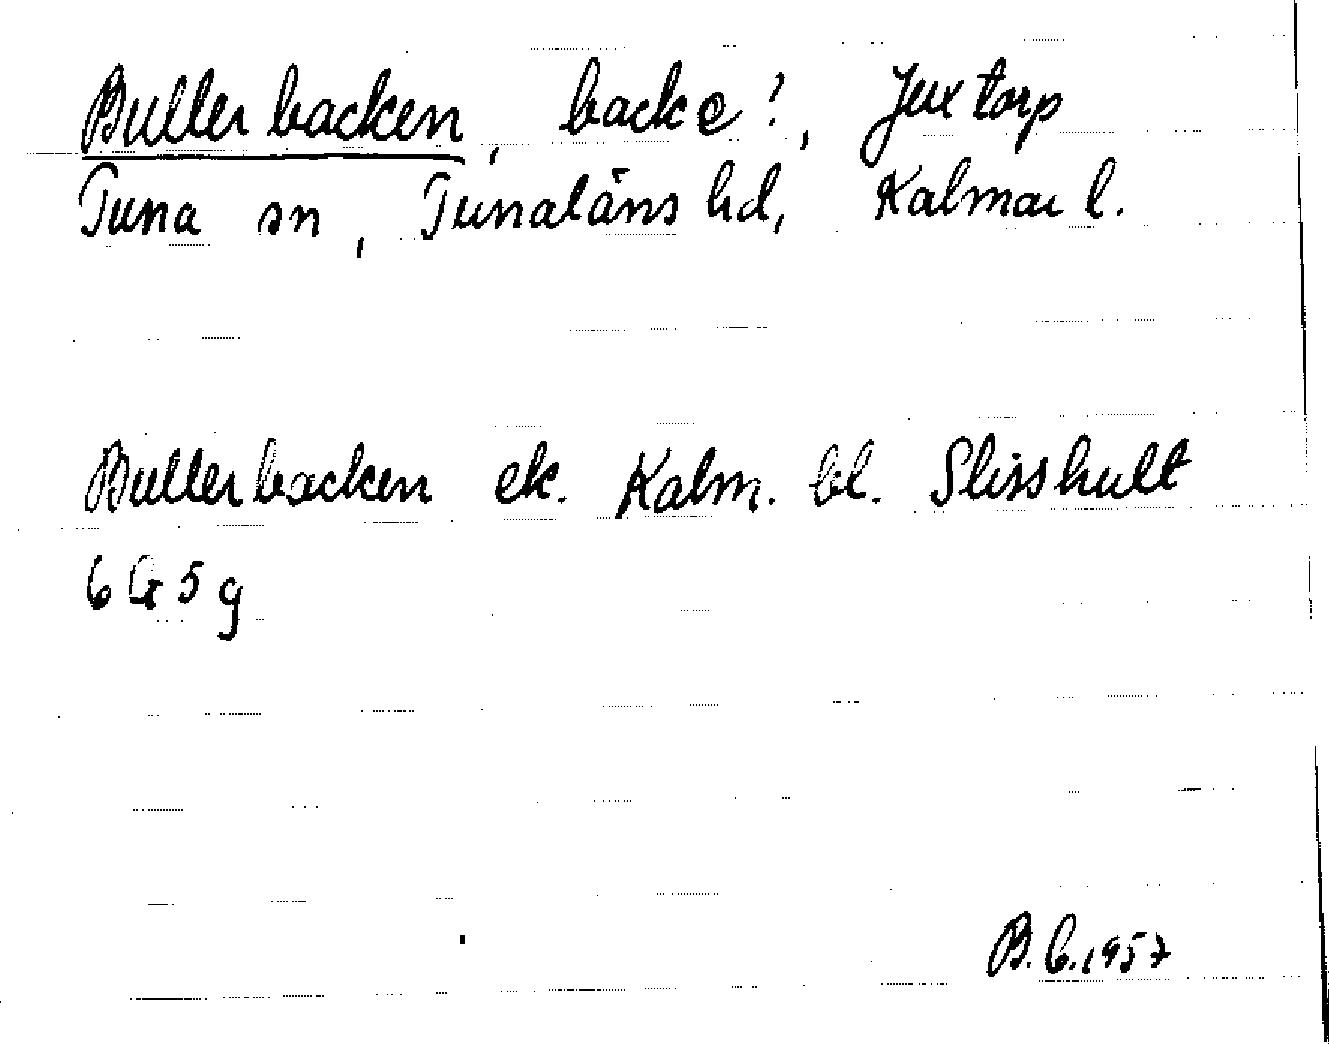 Bullerbacken, backe?, Juxtorp
Tuna sn, Tunaläns hd, Kalmar l.
Bullerbacken ek. Kalm. bl. Slisshult
6G5g
B.C. 1957